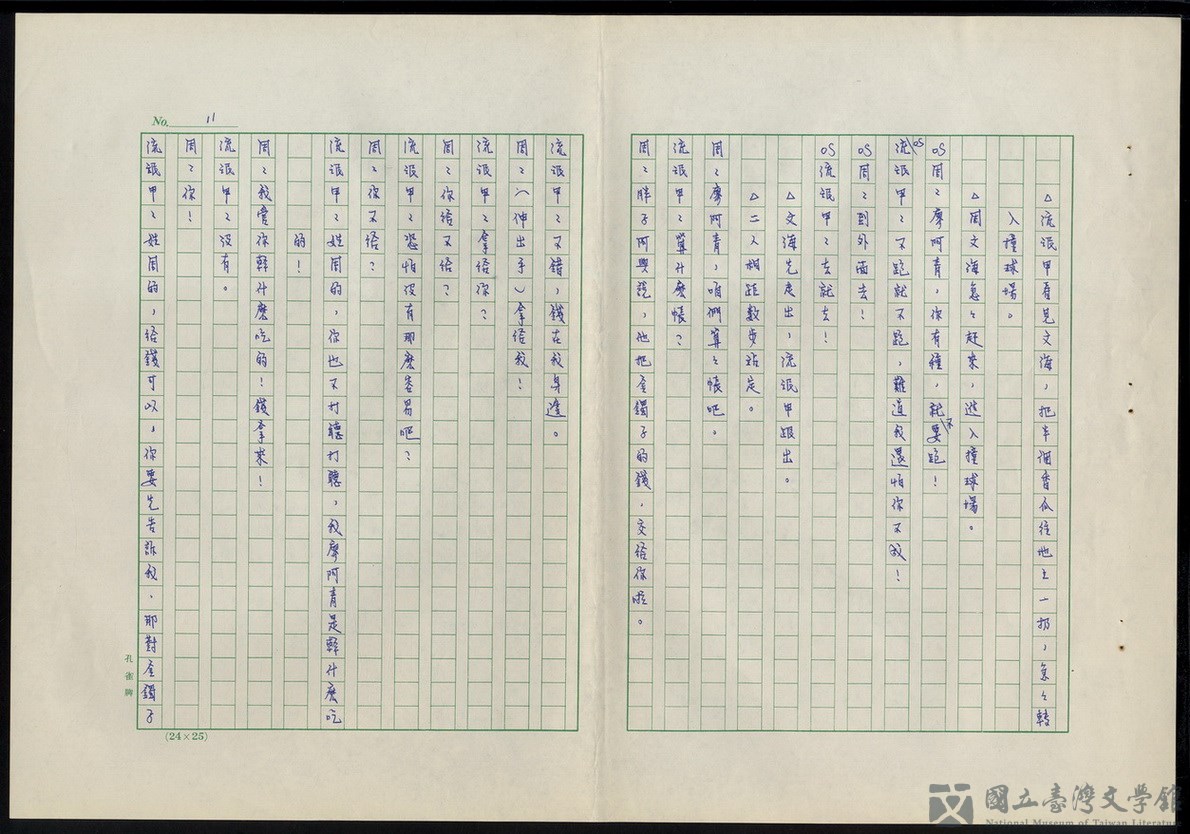 No. 11
△流氓甲看見文海，把半個香瓜往地上一扔，急々轉
入撞球場。
△周文海急々赶來，進入撞球場。
OS周：廖阿青，你有種，就不要跑！
OS流氓甲：不跑就不跑，難道我還怕你不成！
OS周：到外面去！
OS流氓甲：去就去！
△文海先走出，流氓甲跟出。
△二人相距数步站定。
周：廖阿青，咱們算々帳吧。
流氓甲：算什麽帳？
周：胖子阿興説，他把金鐲子的錢，交给你啦。
流氓甲：不錯，錢在我身邊。
周：（伸出手）拿给我！
流氓甲：拿给你？
周：你给不给？
流氓甲：恐怕没有那麽容易吧？
周：你不给？
流氓甲：姓周的，你也不打聽打聽，我廖阿青是幹什麽吃
的！
周：我管你幹什麽吃的！錢拿來！
流氓甲：没有。
周：你！
流氓甲：姓周的，给錢可以，你要先告訴我，那對金鐲子
孔雀牌
(24×25)
國立臺灣文學館
National Museum of Taiwan Literature